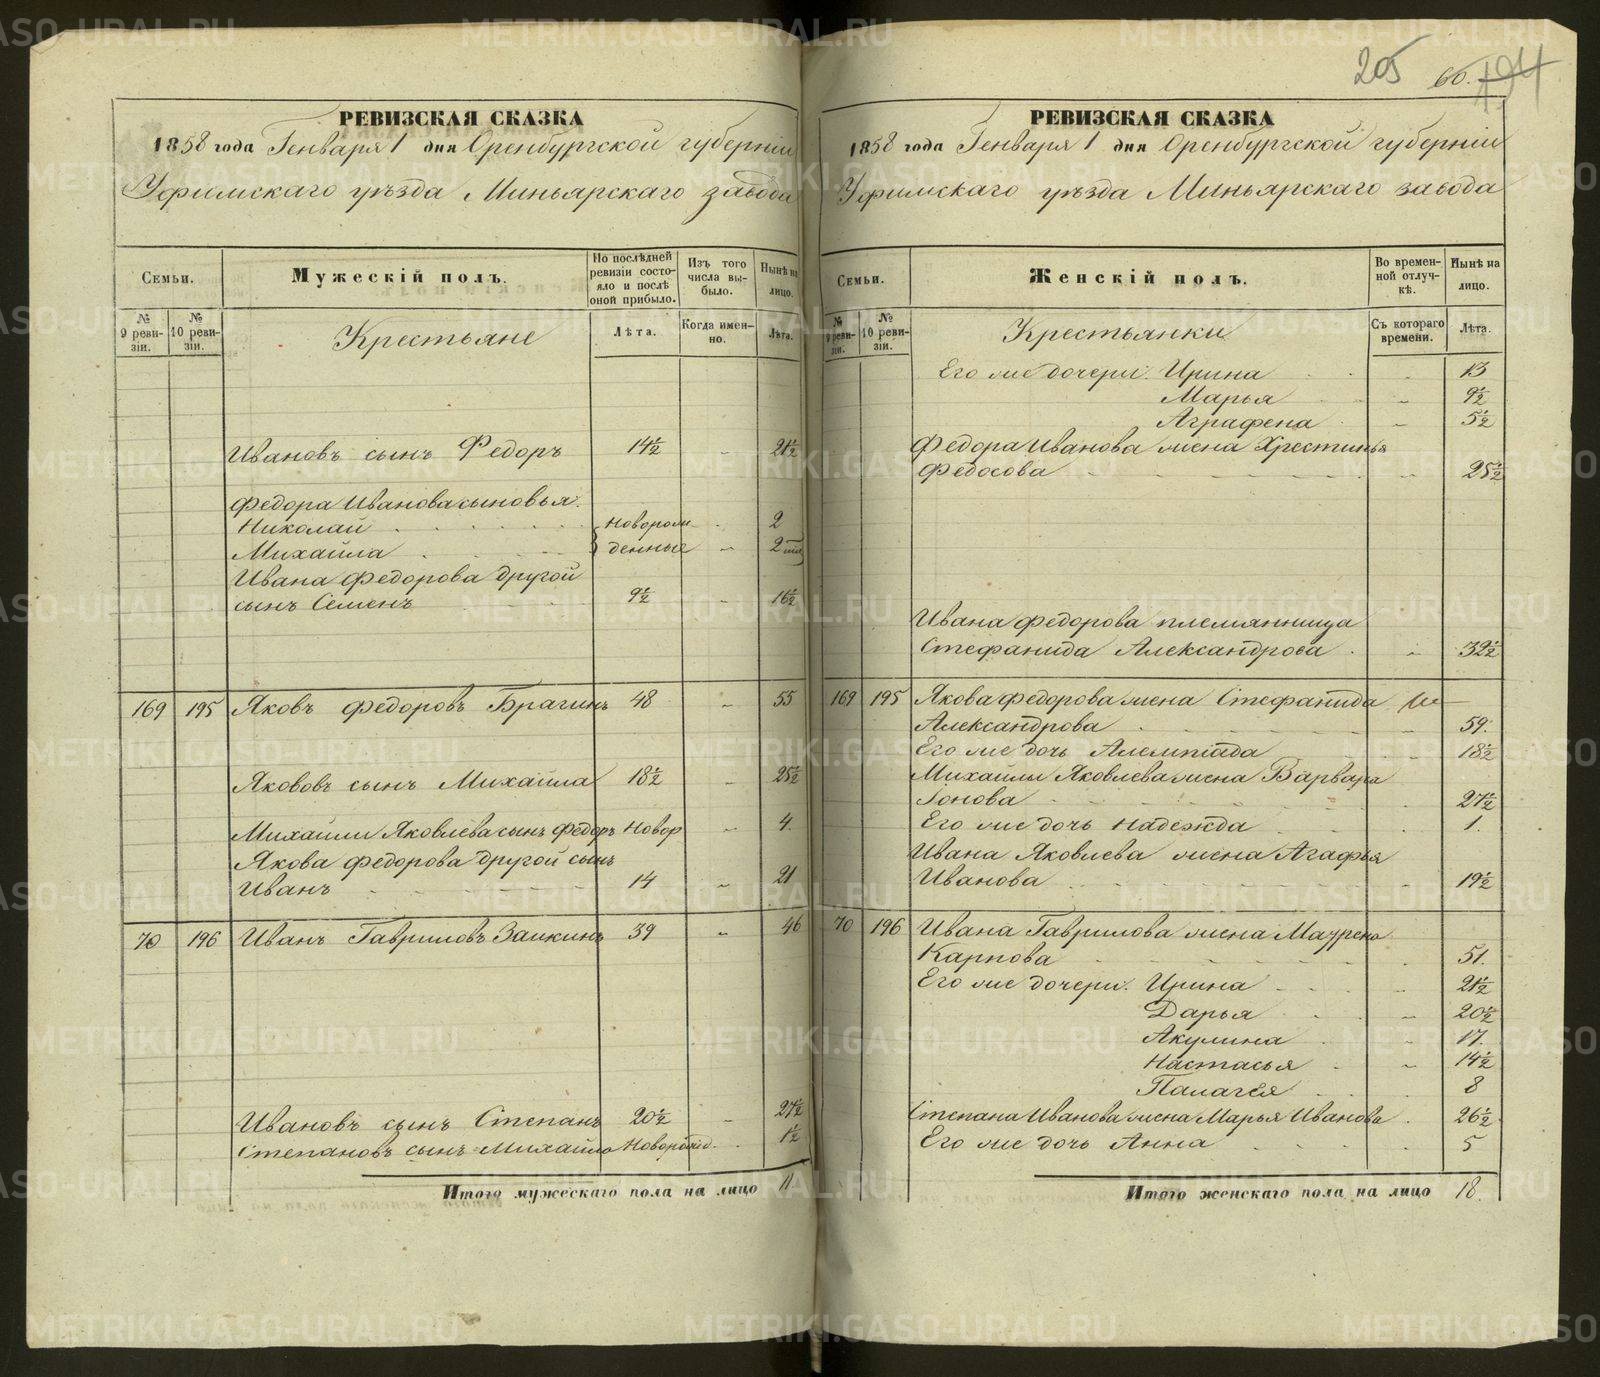 205 60. 194
РЕВИЗСКАЯ СКАЗКА
1858 года Генваря 1 дня Оренбургской губерніи
Уфимскаго уѣзда Миньярскаго завода
Семьи.
Мужескій полъ.
По послѣдней ревизіи состояло и послѣ оной прибыло.
Изъ того числа выбыло.
Нынѣ на лицо.
№ 9 ревизіи.
№ 10 ревизіи.
Крестьяне
Лѣта.
Когда именно.
Лѣта.
Ивановъ сынъ Федоръ 14½ „ 21½
Федора Иванова сыновья.
Николай Новорож 2
Михайла денные „ 2 
Ивана Федорова другой
сынъ Семенъ 9½ „ 16½
169 195 Яковъ Федоровъ Брагинъ 48 „ 55
Якововъ сынъ Михайла 18½ „ 25½
Михайлы Яковлева сынъ Федоръ Новор „ 4.
Якова Федорова другой сынъ
Иванъ 14 „ 21
70 196 Иванъ Гавриловъ Заикинъ 39 „ 46
Ивановъ сынъ Степанъ 20½ „ 27½
Степановъ сынъ Михайло Новорожд. 1½
Итого мужескаго пола на лицо 11
РЕВИЗСКАЯ СКАЗКА
1858 года Генваря 1 дня Оренбургской губерніи
Уфимскаго уѣзда Миньярскаго завода
Семьи.
Женскій полъ.
Во временной отлучкѣ.
Нынѣ на лицо.
№ 9 ревизіи.
№ 10 ревизіи.
Крестьянки
Съ котораго времени.
Лѣта.
Его же дочери. Ирина „ 13
Марья „ 9½
Аграфена „ 5½
Федора Иванова жена Хрестинья
Федосова „ 25½
Ивана Федорова племянница
Стефанида Александрова „ 32½
169 195 Якова Федорова жена Стефанида
Александрова „ 59.
Его же дочь Алемпіада „ 18½
Михайлы Яковлева жена Варвара
Іонова 27½
Его же дочь Надежда 1.
Ивана Яковлева жена Агафья
Иванова „ 19½
70 196 Ивана Гаврилова жена Маурена
Карпова 51.
Его же дочери. Ирина „ 21½
Дарья „ 20½
Акулина „ 17.
Настасья „ 14½
Палагея 8
Степана Иванова жена Марья Иванова 26½
Его же дочь Анна 5
Итого женскаго пола на лицо 18.
METRIKI.GASO-URAL.RU